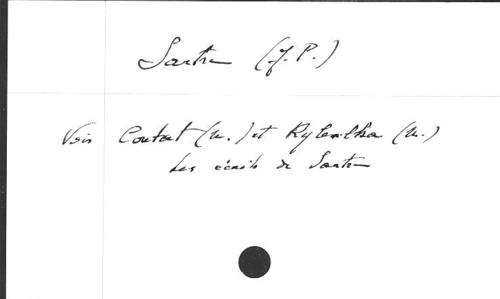 Sartre (J. P.)
Voir Contat (M.) et Rybalka (M.)
Les écrits de Sartre